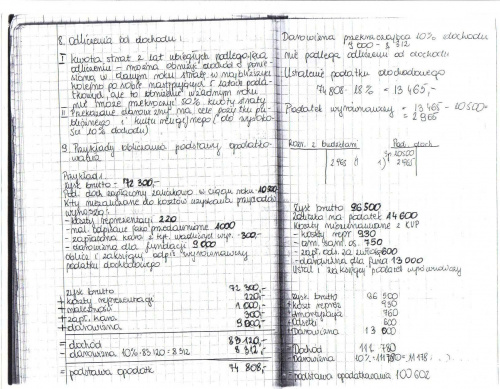 8. Odliczenia od dochodu:
I Kwota strat z lat ubiegłych podlegająca
odliczeniu – można obniżyć dochód o ponie-
sioną w danym roku stratę w najbliższych
kolejno po sobie następujących 5 latach podat-
kowych, ale to obniżenie w żadnym roku
nie może przekroczyć 50% kwoty straty
II Przekazane darowizny na cele pożytku pu-
blicznego i kultu religijnego (do wysoko-
ści 10% dochodu)
9. Przykłady obliczania podstawy opodatko-
wania
Przykład 1.
Zysk brutto = 72 300,-
Pod. doch zapłacony zaliczkowo w ciągu roku 10500
Kty niezaliczane do kosztów uzyskania przychodów
wynoszą:
- koszty reprezentacji 220
- nal. odpisane jako przedawnione 1000
- zapłacona kara z tyt. wadliwych wyr. 300,-
- darowizna dla fundacji 9000
oblicz i zaksięguj odpis wyrównawczy
podatku dochodowego
zysk brutto 72 300,-
+ koszty reprezentacji 220,-
+ należności 1 000,-
+ zapł. kara 300,-
+ darowizna 9 000,-
= dochód 83 120,-
- darowizna 10% · 83 120 = 8 312 8 312,-
= podstawa opodatk 74 808,-
Darowizna przekraczająca 10% dochodu
9 000 - 8 312
nie podlega odliczeniu od dochodu
Ustalenie podatku dochodowego
74 808 · 18% = 13 465,-
Podatek wyrównawczy = 13 465 - 10 500 =
= 2965
Rozn. z budżetem Pod. doch
2965 (1 10500
1) 2965
Zysk brutto 96500
Zaliczka na podatek 14 600
Koszty nieuznawane z KUP
- koszty repr. 930
- am. sam. os. 750
- zapł. ods. za zwłokę 600
- darowizna dla fund 13 000
Ustal i zaksięguj podatek wyrównawczy
Zysk brutto 96 500
+ koszt repräz 930
+ amortyzacja 750
+ Odsetki 600
+ Darowizna 13 000
= Dochód 111 780
- Darowizna 10% · 111780 = 11178
= podstawa opodatkowania 100 602